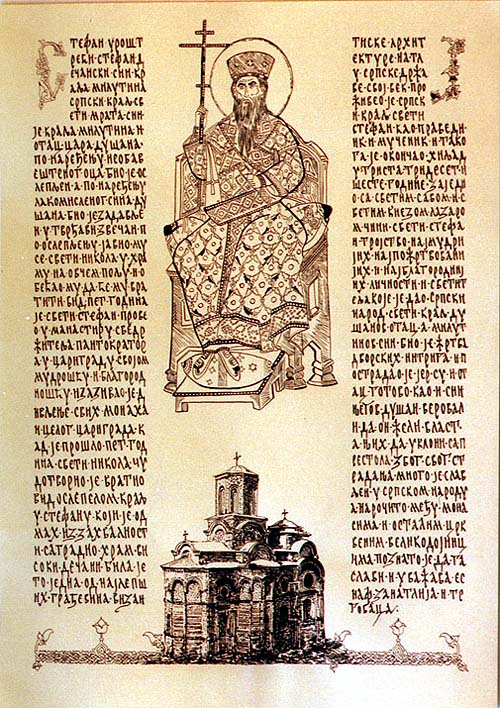 СТЕФАН УРОШ Т
РЕЋИ СТЕФАН Д
ЕЧАНСКИ·СИН·КР
АЉА МИЛУТИНА
СРПСКИ КРАЉ·СВ
ЕТИ МРАТА·СИН·
ЈЕ КРАЉА·МИЛУТИНА·И
ОТАЦ·ЦАРА·ДУШАНА·
ПО·НАРЕЂЕЊУ·НЕОБАВ
ЕШТЕНОГ·ОЦА·БИО·ЈЕ·ОС
ЛЕПЉЕН·А·ПО·НАРЕЂЕЊУ
ЛАКОМИСЛЕНОГ·СИНА·Д
УШАНА·БИО·ЈЕ ЗАДАВЉЕ
Н·У·ТВРЂАВИ ЗВЕЧАН·П
О·ОСЛЕПЉЕЊУ·ЈАВИО·МУ
СЕ·СВЕТИ·НИКОЛА·У·ХРА
МУ·НА·ОВЧЕМ·ПОЉУ·И·О
БЕЋАО·МУ·ДА·ЋЕ·МУ·ВРА
ТИТИ·ВИД·ПЕТ·ГОДИНА
ЈЕ·СВЕТИ·СТЕФАН·ПРОВЕ
О·У·МАНАСТИРУ·СВЕДРЖ
ИТЕЉА·ПАНТОКРАТОР
А·У·ЦАРИГРАДУ·СВОЈОМ
МУДРОШЋУ·И·БЛАГОРОД
НОШЋУ·ИЗАЗИВАО·ЈЕ Д
ИВЉЕЊЕ·СВИХ·МОНАХА
И ЦЕЛОГ·ЦАРИГРАДА·К
АД·ЈЕ ПРОШЛО·ПЕТ·ГОД
ИНА·СВЕТИ·НИКОЛА·ЧУ
ДОТВОРНО·ЈЕ·ВРАТИО
ВИД·ОСЛЕПЕЛОМ·КРАЉ
У·СТЕФАНУ·КОЈИ·ЈЕ·ОД
МАХ·ИЗ·ЗАХВАЛНОСТ
И·САГРАДИО·ХРАМ·ВИ
СОКИ·ДЕЧАНИ·БИЛА·ЈЕ
ТО·ЈЕДНА·ОД·НАЈЛЕПШ
ИХ·ГРАЂЕВИНА·ВИЗАН
ТИСКЕ·АРХИТ
ЕКТУРЕ·НА·ТЛ
У·СРПСКЕ ДРЖА
ВЕ·СВОЈ·ВЕК·ПРО
ЖИВЕО·ЈЕ·СРПСК
И·КРАЉ·СВЕТИ
СТЕФАН·КАО·ПРАВЕДН
ИК·И·МУЧЕНИК·И·ТАКО
ГА·ЈЕ·ОКОНЧАО·ХИЉАД
У·ТРИСТА·ТРИДЕСЕТ·И
ШЕСТЕ·ГОДИНЕ·ЗАЈЕДН
О·СА·СВЕТИМ·САВОМ·И·СВ
ЕТИМ·КНЕЗОМ ЛАЗАРО
М·ЧИНИ·СВЕТИ·СТЕФА
Н·ТРОЈСТВО·НАЈМУДРИ
ЈИХ·НАЈПОЖРТВОВАНИ
ЈИХ·И·НАЈБЛАГОРОДНИЈ
ИХ·ЛИЧНОСТИ·И·СВЕТИТ
ЕЉА КОЈЕ·ЈЕ ДАО·СРПСКИ
НАРОД·СВЕТИ·КРАЉ·ДУ
ШАНОВ·ОТАЦ·А·МИЛУТ
ИНОВ·СИН·БИО·ЈЕ·ЖРТВА
ДВОРСКИХ·ИНТРИГА·И П
ОСТРАДАО·ЈЕ·ЈЕР·СУ·И·ОТ
АЦ·ГОТОВО·КАО·И·СИН
ЊЕГОВ·ДУШАН·ВЕРОВАЛ
И·ДА·ОН·ЖЕЛИ·ВЛАСТ·
А·ЊИХ·ДА·УКЛОНИ·СА П
РЕСТОЛА·ЗБОГ·СВОГ·СТ
РАДАЊА·МНОГО·ЈЕ·СЛАВ
ЉЕН·У·СРПСКОМ·НАРОДУ
А·НАРОЧИТО·МЕЂУ·МОНА
СИМА·И·ОСТАЛИМ·ЦРК
ВЕНИМ·ВЕЛИКОДОЈНИЦ
ИМА·ПОЗНАТО·ЈЕ·ДА·ГА
СЛАВИ·И·УВАЖАВА·ЕС
НАФ·ЗАНАТЛИЈА·И·ТР
ГОВАЦА·